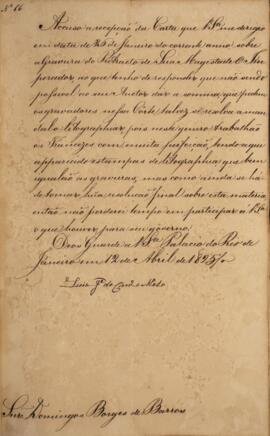 Nº 66
Accuso a recepção da Carta que V.Sª me dirigio
em data de 25 de Janeiro do corrente anno sobre
a Gravura do Retracto de Sua Magestade O Im
perador, ao que tenho de responder que não sendo
possivel ao seu Auctor dar a somma que pedem
os gravadores nessa Côrte talvez se resolva a man
dalo lithographar, pois neste genero trabalhão
os Francezes com muita perfeição, tendo aqui
apparecido estampas de litographia que bem
igualão as gravuras, mas como ainda se há
de tomar huma resolução final sobre esta materia
então não perderei tempo em participar a V.Sª
o que houver para seu governo.
Deos Guarde a V.Sª Palacio do Rio de
Janeiro em 12 de Abril de 1825
Luiz Jº de Carvº e Mello
Snr. Domingos Borges de Barros